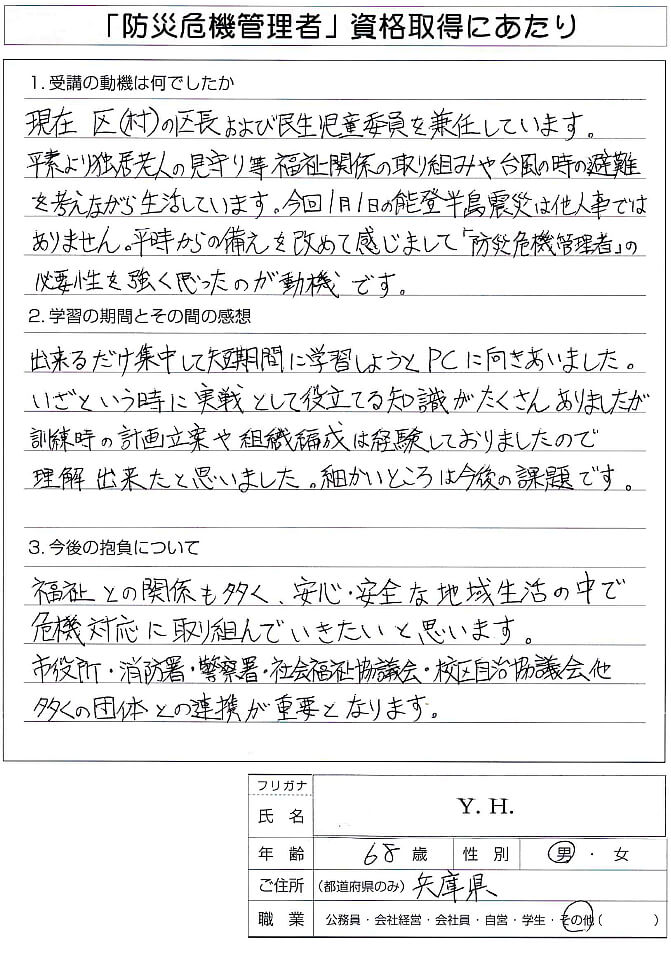 「防災危機管理者」資格取得にあたり
1. 受講の動機は何でしたか
現在 区(村)の区長および民生児童委員を兼任しています。
平素より独居老人の見守り等福祉関係の取り組みや台風の時の避難
を考えながら生活しています。今回1月1日の能登半島震災は他人事では
ありません。平時からの備えを改めて感じまして「防災危機管理者」の
必要性を強く思ったのが動機です。
2. 学習の期間とその間の感想
出来るだけ集中して短期間に学習しようとPCに向きあいました。
いざという時に実戦として役立てる知識がたくさんありましたが
訓練時の計画立案や組織編成は経験しておりましたので
理解出来たと思いました。細かいところは今後の課題です。
3. 今後の抱負について
福祉との関係も多く、安心・安全な地域生活の中で
危機対応に取り組んでいきたいと思います。
市役所・消防署・警察署・社会福祉協議会・校区自治協議会他
多くの団体との連携が重要となります。
フリガナ
氏名 Y. H.
年齢 68歳 性別 男・女
ご住所 (都道府県のみ) 兵庫県
職業 公務員・会社経営・会社員・自営・学生・その他( )